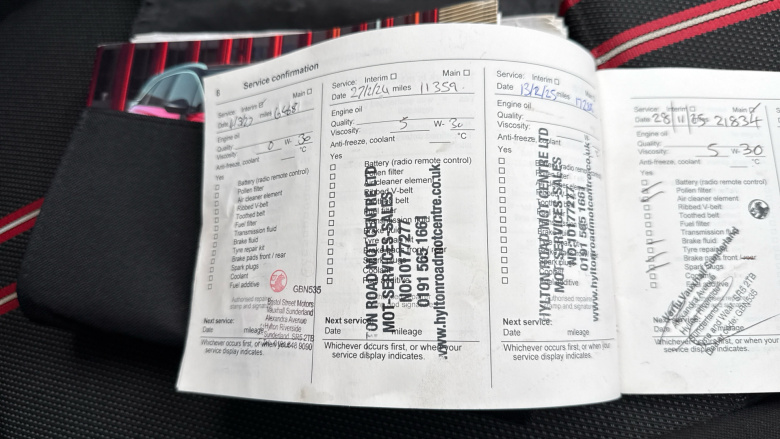 8
Service confirmation
Service: Interim ☑ Main ☐
Date miles 6468
Engine oil
Quality:
Viscosity: 0 W- 30
Anti-freeze, coolant °C
Yes
☐ Battery (radio remote control)
☐ Pollen filter
☐ Air cleaner element
☐ Ribbed V-belt
☐ Toothed belt
☐ Fuel filter
☐ Transmission fluid
☐ Brake fluid
☐ Tyre repair kit
☐ Brake pads front / rear
☐ Spark plugs
☐ Coolant
☐ Fuel additive
GBN535
Authorised repairer
stamp and signature
Bristol Street Motors
Vauxhall Sunderland
Alexandra Avenue
Hylton Riverside
Sunderland SR5 2TB
Next service:
Date mileage
Whichever occurs first, or when your
service display indicates.
Service: Interim ☐ Main ☐
Date 27/2/24 miles 11359.
Engine oil
Quality:
Viscosity: 5 W- 30
Anti-freeze, coolant °C
Yes
Battery (radio remote control)
Pollen filter
Air cleaner element
V-belt
belt
TON ROAD MOT CENTRE LTD
MOT-SERVICES-SALES
NO:10177277
0191 565 1661
www.hyltonroadmotcentre.co.uk
Next service:
Date mileage
Whichever occurs first, or when your
service display indicates.
Service: Interim ☐ Main ☐
Date 13/2/25 miles
Engine oil
Quality:
Viscosity:
Anti-freeze, coolant °C
Yes
HYLTON ROAD MOT CENTRE LTD
MOT-SERVICES-SALES
NO:10177277
0191 565 1661
www.hyltonroadmotcentre.co.uk
Next service:
Date mileage
Whichever occurs first, or when your
service display indicates.
Service: Interim ☐ Main ☑
Date 28/11/25 miles 21834
Engine oil
Quality:
Viscosity: 5 W- 30
Anti-freeze, coolant °C
Yes
Battery (radio remote control)
Pollen filter
Air cleaner element
Ribbed V-belt
Toothed belt
Fuel filter
Transmission fluid
Brake fluid
Tyre repair
Brake pads front / rear
Spark plugs
Coolant
SR5 2TB
GBN535
Date mileage
Whichever occurs first, or when your
service display indicates.